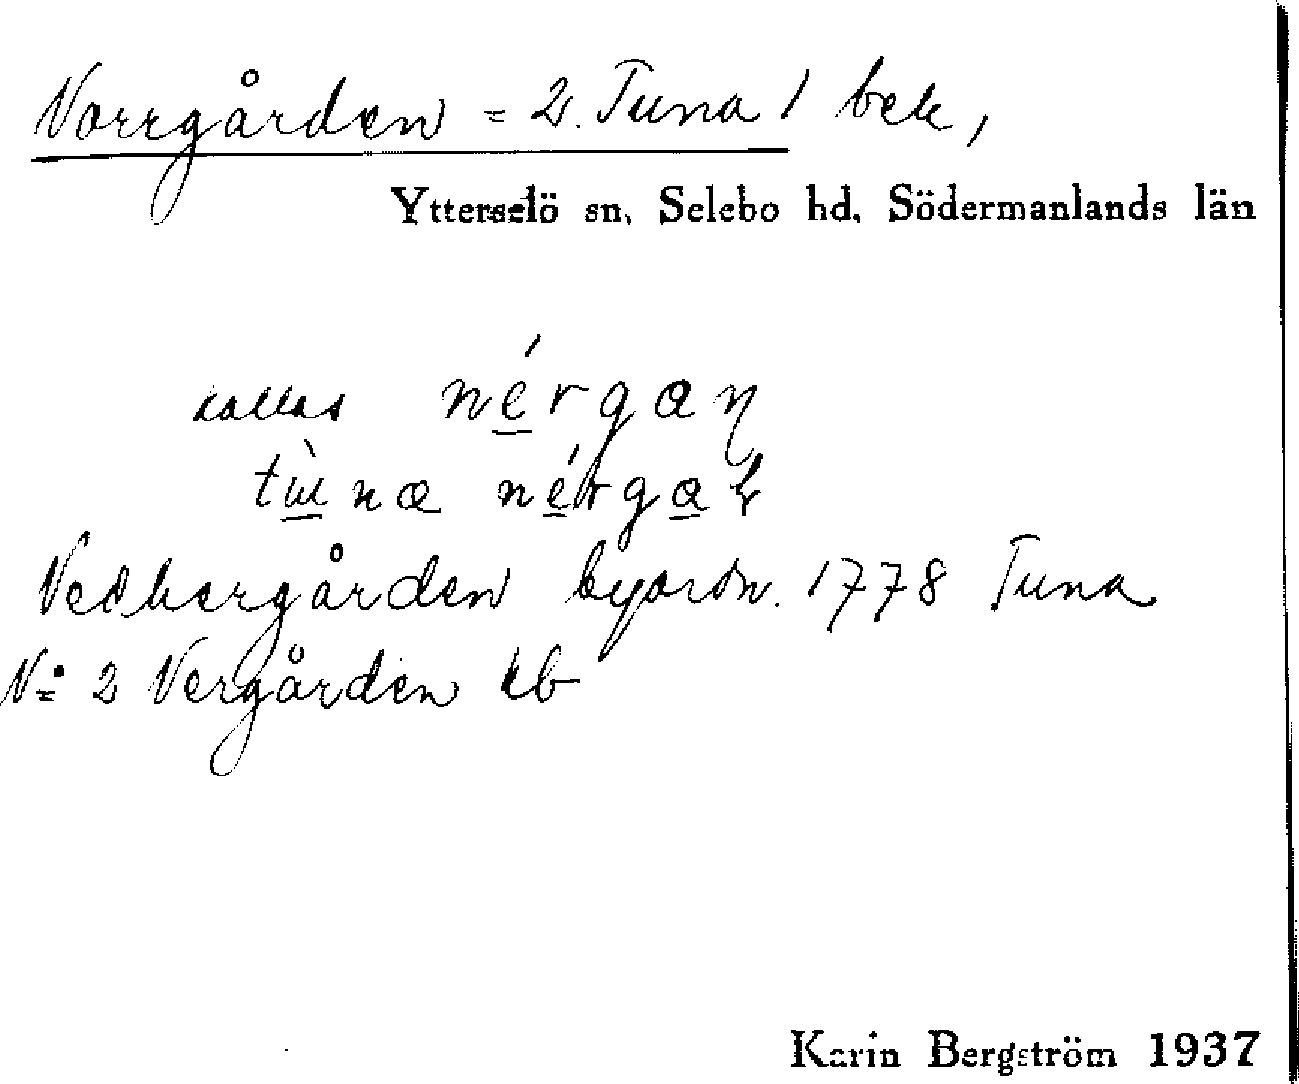 Norrgården = 2. Tuna 1 bek,
Ytterselö sn, Selebo hd, Södermanlands län
kallas nérgaɳ
tùna nérgaɳ
Nedhergården byordn. 1778 Tuna
No 2 Nergården kb
Karin Bergström 1937